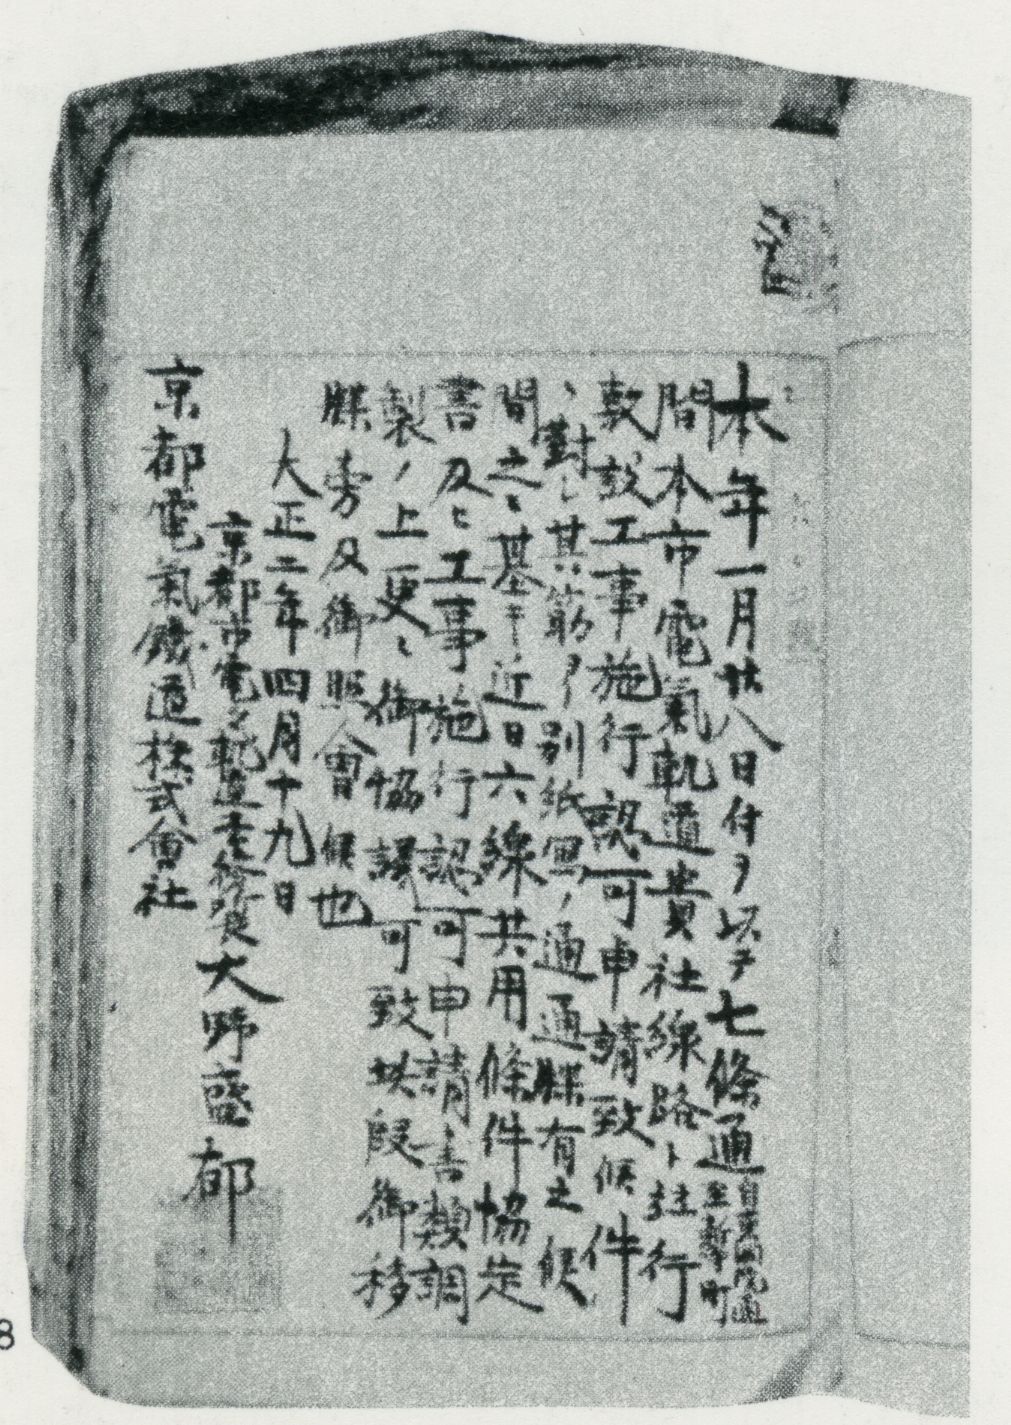 本年一月廿八日付ヲ以テ七條通自東洞院通至新町
間本市電氣軌道貴社線路ト並行
敷設工事施行認可申請致候件
ニ對シ其筋ヨリ別紙寫ノ通通牒有之候
間之ニ基キ近日六線共用條件協定
書及ヒ工事施行認可申請書類調
製ノ上更ニ御協議可致候段御移
牒旁及御照會候也
大正二年四月十九日
京都市電氣軌道事務所長大野盛郁
京都電氣鐵道株式會社
8